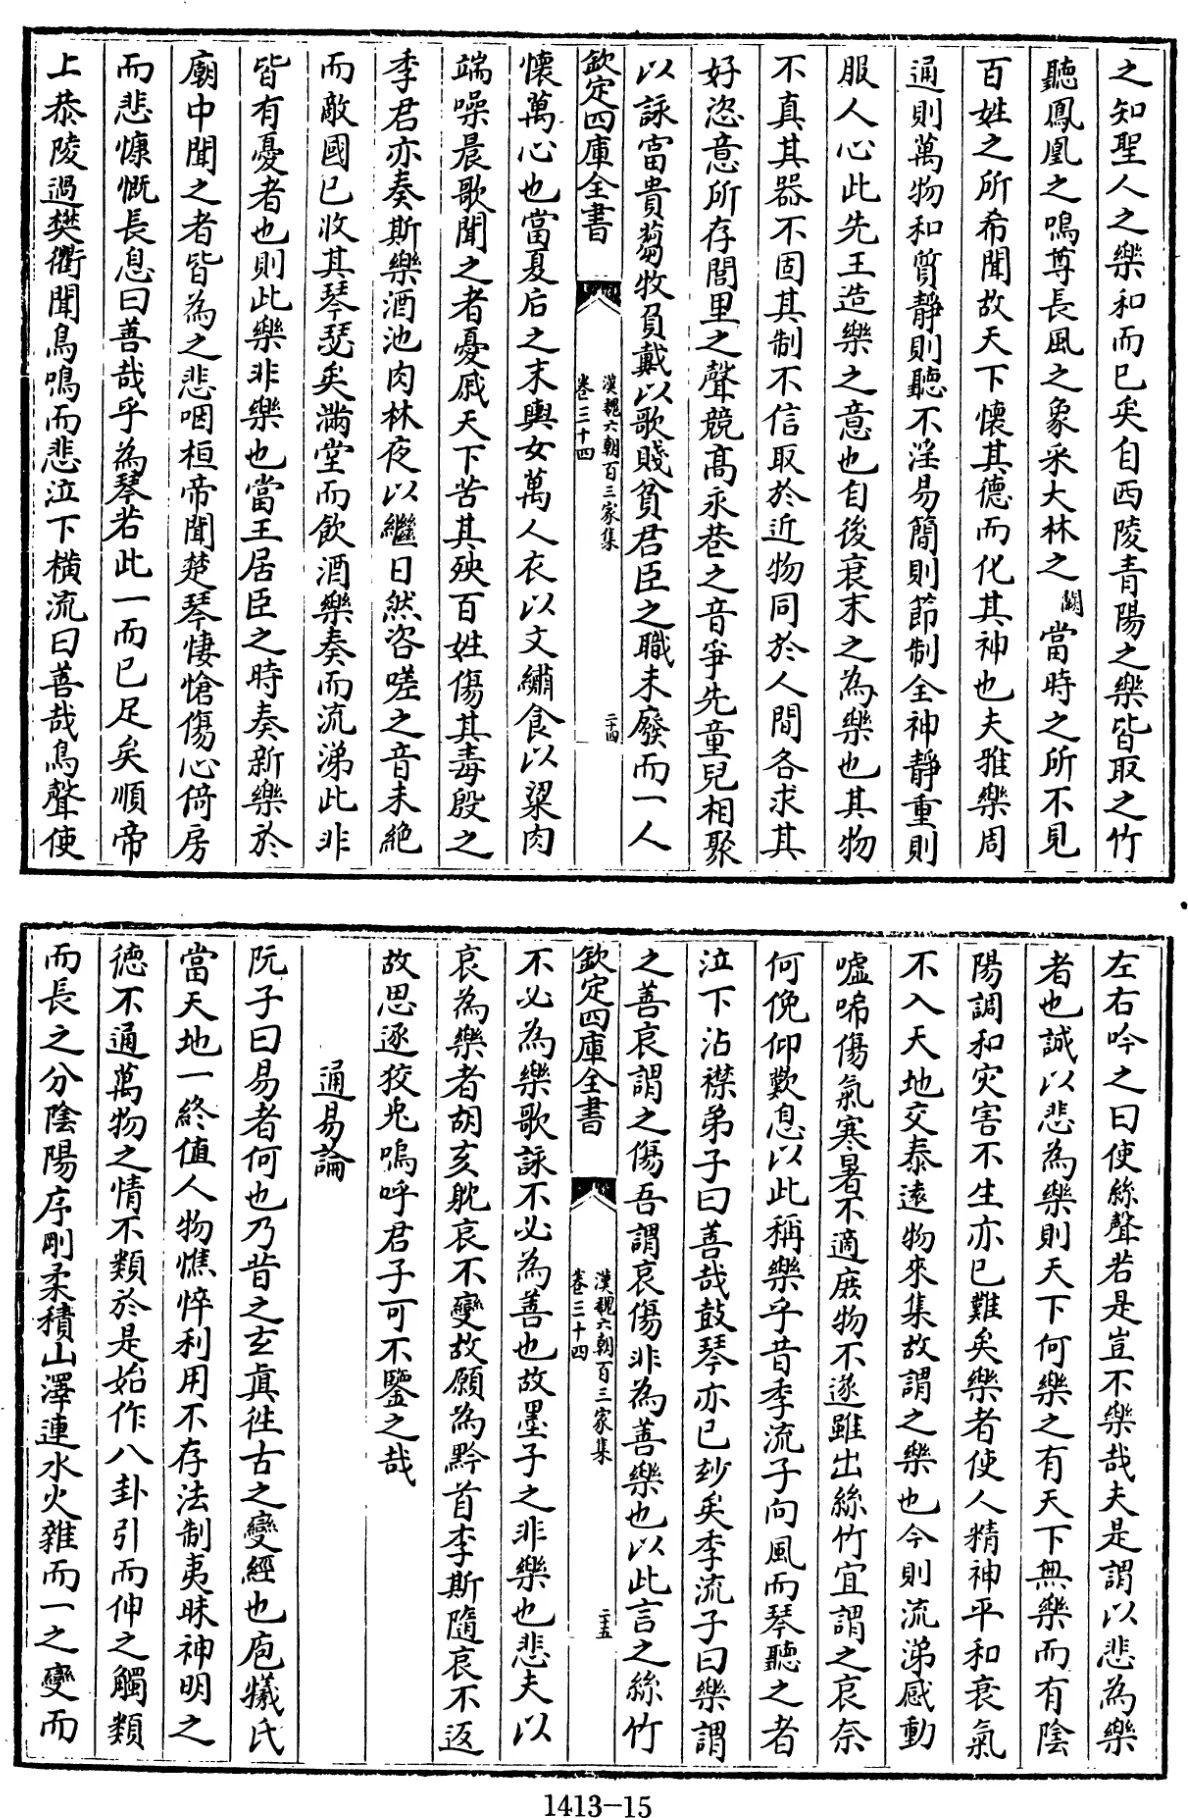 之知聖人之樂和而已矣自西陵青陽之樂皆取之竹
聽鳳凰之鳴尊長風之象采大林之闕當時之所不見
百姓之所希聞故天下懷其德而化其神也夫雅樂周
通則萬物和質靜則聽不淫易簡則節制全神靜重則
服人心此先王造樂之意也自後衰末之為樂也其物
不真其器不固其制不信取於近物同於人間各求其
好恣意所存閭里之聲競髙永巷之音爭先童兒相聚
以詠富貴蒭牧負戴以歌賤貧君臣之職未廢而一人
欽定四庫全書
漢魏六朝百三家集
卷三十四
二十四
懷萬心也當夏后之末輿女萬人衣以文繡食以粱肉
端噪晨歌聞之者憂戚天下苦其殃百姓傷其毒殷之
季君亦奏斯樂酒池肉林夜以繼日然咨嗟之音未絶
而敵國已收其琴瑟矣滿堂而飲酒樂奏而流涕此非
皆有憂者也則此樂非樂也當王居臣之時奏新樂於
廟中聞之者皆為之悲咽桓帝聞楚琴悽愴傷心倚房
而悲慷慨長息曰善哉乎為琴若此一而已足矣順帝
上恭陵過樊衢聞鳥鳴而悲泣下橫流曰善哉鳥聲使
左右吟之曰使絲聲若是豈不樂哉夫是謂以悲為樂
者也誠以悲為樂則天下何樂之有天下無樂而有隂
陽調和灾害不生亦已難矣樂者使人精神平和衰氣
不入天地交泰遠物來集故謂之樂也今則流涕感動
噓唏傷氣寒暑不適庻物不遂雖出絲竹宜謂之哀奈
何俛仰歎息以此稱樂乎昔季流子向風而琴聽之者
泣下沾襟弟子曰善哉鼓琴亦已妙矣季流子曰樂謂
之善哀謂之傷吾謂哀傷非為善樂也以此言之絲竹
欽定四庫全書
漢魏六朝百三家集
卷三十四
二十五
不必為樂歌詠不必為善也故墨子之非樂也悲夫以
哀為樂者胡亥躭哀不變故願為黔首李斯隨哀不返
故思逐狡兎嗚呼君子可不鑒之哉
通易論
阮子曰易者何也乃昔之玄真徃古之變經也庖犧氏
當天地一終值人物憔悴利用不存法制夷昧神明之
徳不通萬物之情不類於是始作八卦引而伸之觸類
而長之分隂陽序剛柔積山澤連水火雜而一之變而
1413—15